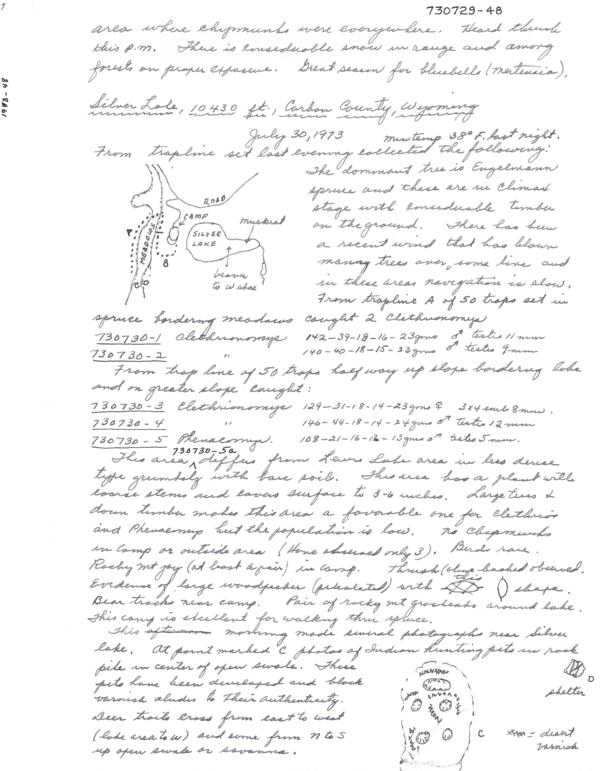 730729-48
7
1973-48
area where chipmunks were everywhere. Heard thrush
this p.m. There is considerable snow in range and among
forests on proper exposure. Great season for bluebells (Mertensia).
Silver Lake, 10430 ft., Carbon County, Wyoming
July 30, 1973 min temp 38° F. last night.
From trapline set last evening collected the following:
The dominant tree is Engelmann
spruce and these are in climax
stage with considerable timber
on the ground. There has been
a recent wind that has blown
many trees over, some live and
in these areas navigation is slow.
From trapline A of 50 traps set in
ROAD
CAMP
muskrat
A
MEADOWS
SILVER
LAKE
B
beaver
to W shore
C
spruce bordering meadows caught 2 Clethrionomys
730730-1 Clethrionomys 142-39-18-16-23gms ♂ testis 11mm
730730-2 " 140-40-18-15-23gms ♂ testis 9mm
From trap line of 50 traps half way up slope bordering lake
and on greater slope caught:
730730-3 Clethrionomys 129-31-18-14-23gms ♀ 3x4 emb 8mm.
730730-4 " 146-44-18-14-24gms ♂ testis 12mm
730730-5 Phenacomys 108-21-16-12-13gms ♂ testis 5mm.
730730-5a
This area differs from Lewis Lake area in less dense
type with bare soil. This area has a plant with
coarse stems and covers surface to 3-6 inches. Large trees &
down timber makes this area a favorable one for Clethrio
and Phenacomys but the population is low. No chipmunks
in camp or outside area (Hone observed only 3). Birds rare.
Rocky mt jay (at least a pair) in camp. Thrush (olive backed observed.
Evidence of large woodpecker (pileolated) with this shape.
Bear tracks near camp. Pair of rocky mt grosbeaks around lake.
This camp is excellent for walking thru spruce.
This afternoon morning made several photographs near Silver
lake. At point marked C photos of Indian hunting pits in rock
pile in center of open swale. These
pits have been developed and black
varnish aludes to their authenticity.
Deer trails cross from east to west
(lake area to W) and some from N to S
up open swale or savanna.
D
shelter
C
xxxx = desert
varnish